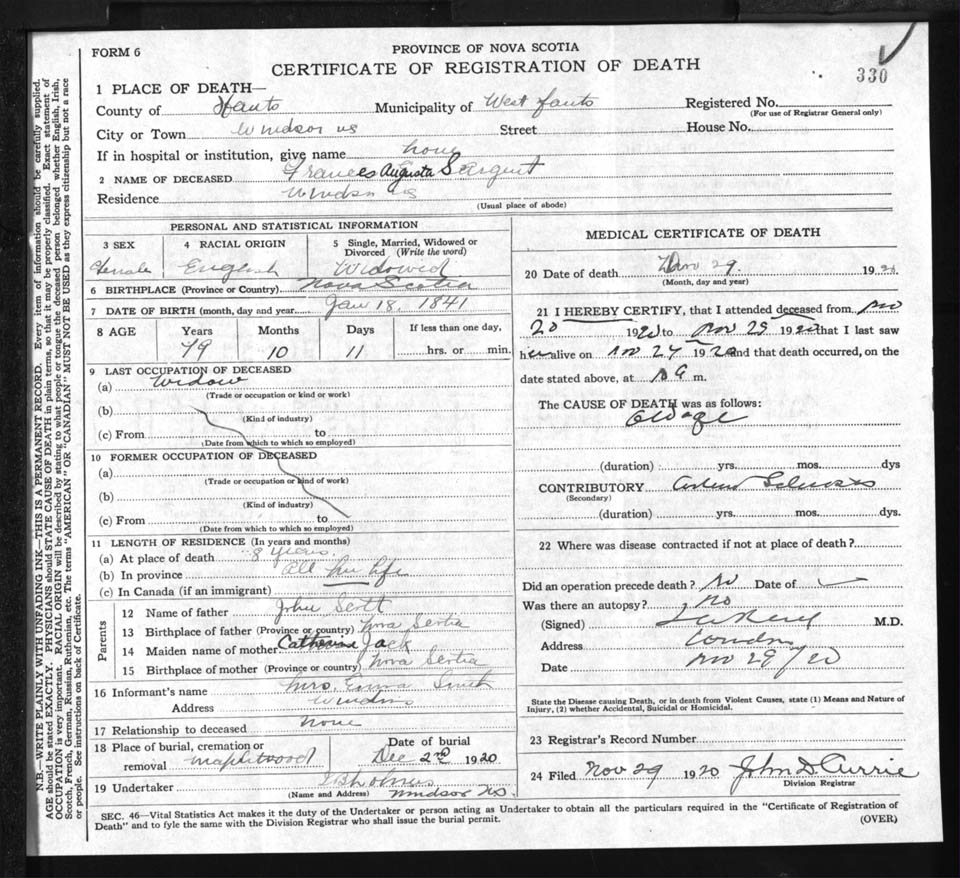 FORM 6
PROVINCE OF NOVA SCOTIA
CERTIFICATE OF REGISTRATION OF DEATH
330
1 PLACE OF DEATH—
County of Hants Municipality of West Hants Registered No.
(For use of Registrar General only)
City or Town Windsor NS Street House No.
If in hospital or institution, give name none
2 NAME OF DECEASED Frances Augusta Sargent
Residence Windsor NS
(Usual place of abode)
PERSONAL AND STATISTICAL INFORMATION
3 SEX 4 RACIAL ORIGIN 5 Single, Married, Widowed or Divorced (Write the word)
Female English Widowed
6 BIRTHPLACE (Province or Country) Nova Scotia
7 DATE OF BIRTH (month, day and year) Jan 18, 1841
8 AGE Years Months Days If less than one day,
79 10 11 hrs. or min.
9 LAST OCCUPATION OF DECEASED
(a) Widow
(Trade or occupation or kind or work)
(b)
(Kind of industry)
(c) From to
(Date from which to which so employed)
10 FORMER OCCUPATION OF DECEASED
(a)
(Trade or occupation or kind of work)
(b)
(Kind of industry)
(c) From to
(Date from which to which so employed)
11 LENGTH OF RESIDENCE (In years and months)
(a) At place of death 8 years
(b) In province All her life
(c) In Canada (if an immigrant)
Parents
12 Name of father John Scott
13 Birthplace of father (Province or country) Nova Scotia
14 Maiden name of mother Catherine Jack
15 Birthplace of mother (Province or country) Nova Scotia
16 Informant's name Mrs. Emma Smith
Address Windsor
17 Relationship to deceased none
18 Place of burial, cremation or removal Maplewood Date of burial Dec 2nd 1920
19 Undertaker
(Name and Address) Windsor NS.
MEDICAL CERTIFICATE OF DEATH
20 Date of death Nov 29. 1920
(Month, day and year)
21 I HEREBY CERTIFY, that I attended deceased from Nov
20 1920 to Nov 29 1920 that I last saw
her alive on Nov 27 1920 and that death occurred, on the
date stated above, at m.
The CAUSE OF DEATH was as follows:
Old age
(duration) yrs. mos. dys
CONTRIBUTORY
(Secondary)
(duration) yrs. mos. dys.
22 Where was disease contracted if not at place of death?
Did an operation precede death? No Date of
Was there an autopsy? No
(Signed) M.D.
Address Windsor
Date Nov 29/20
State the Disease causing Death, or in death from Violent Causes, state (1) Means and Nature of
Injury, (2) whether Accidental, Suicidal or Homicidal.
23 Registrar's Record Number
24 Filed Nov 29 1920 John D Currie
Division Registrar
SEC. 46—Vital Statistics Act makes it the duty of the Undertaker or person acting as Undertaker to obtain all the particulars required in the "Certificate of Registration of
Death" and to fyle the same with the Division Registrar who shall issue the burial permit. (OVER)
N.B.—WRITE PLAINLY WITH UNFADING INK—THIS IS A PERMANENT RECORD. Every item of information should be carefully supplied.
AGE should be stated EXACTLY. PHYSICIANS should STATE CAUSE OF DEATH in plain terms, so that it may be properly classified. Exact statement of
OCCUPATION is very important. RACIAL ORIGIN will be described by stating to what people or tongue the deceased person belonged whether English, Irish,
Scotch, French, German, Russian, Ruthenian, etc. The terms "AMERICAN" OR "CANADIAN" MUST NOT BE USED as they express citizenship but not a race
or people. See instructions on back of Certificate.